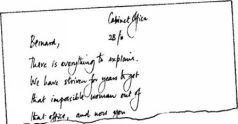 Cabinet Office
28/10
Bernard,
There is everything to explain.
We have striven for years to get
that impossible woman out of
that office, and now you